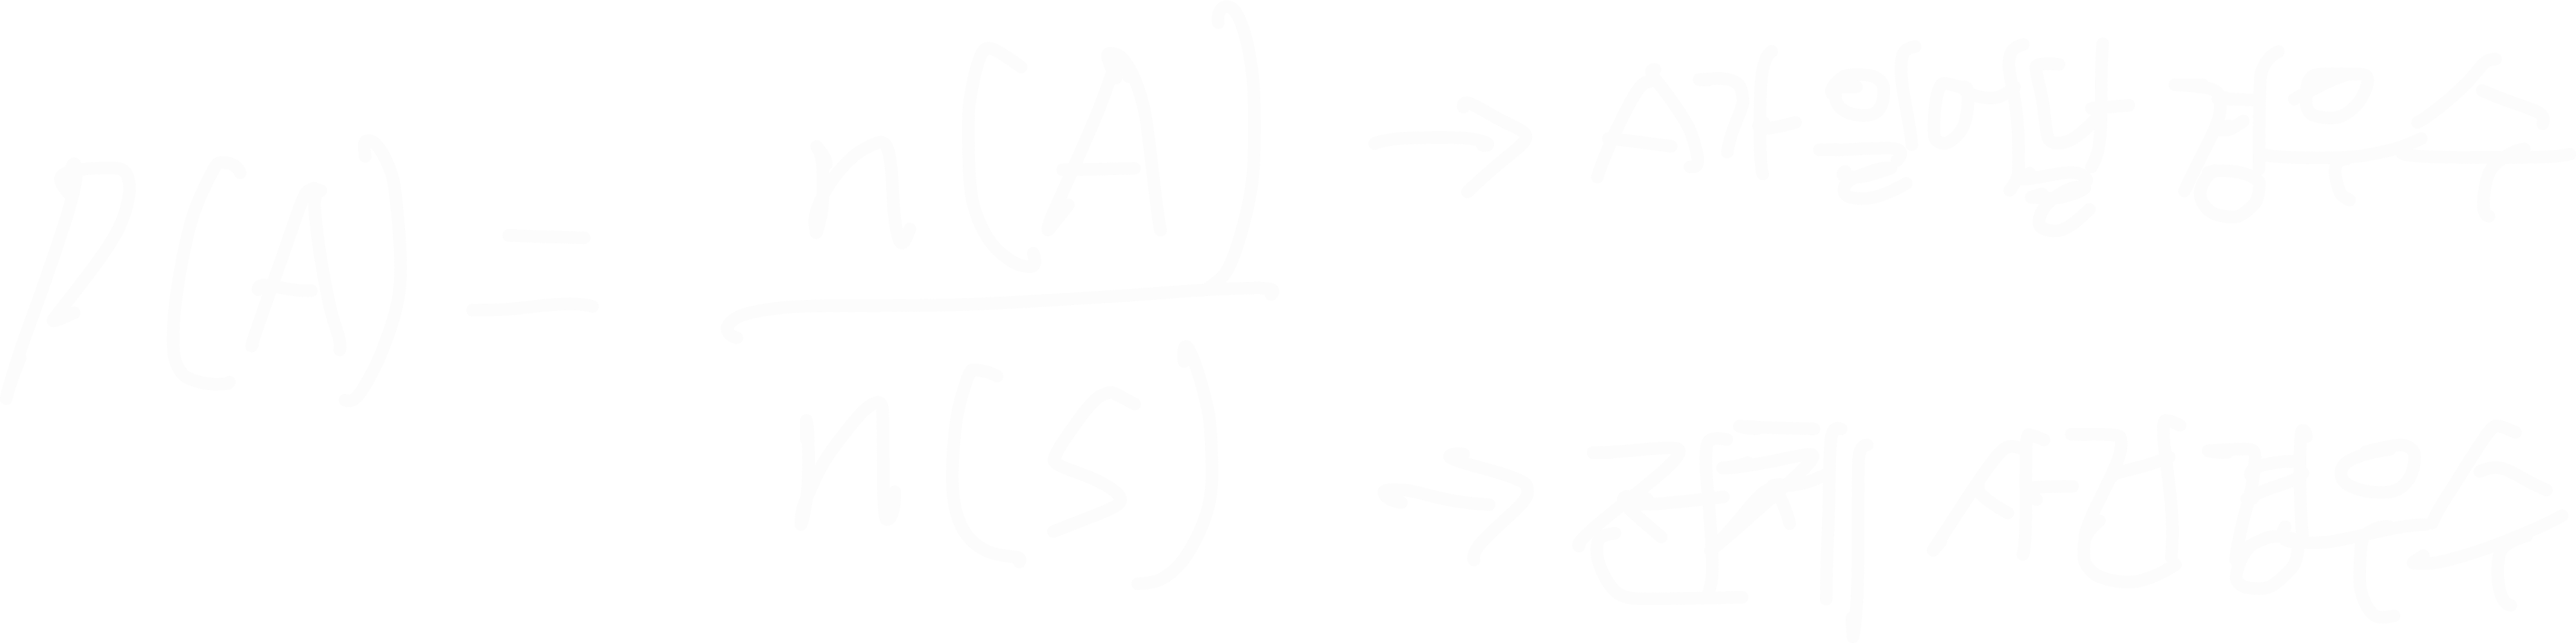 P(A) = n(A) / n(S)
→ A가 일어날 경우수
→ 전체 사건 경우수